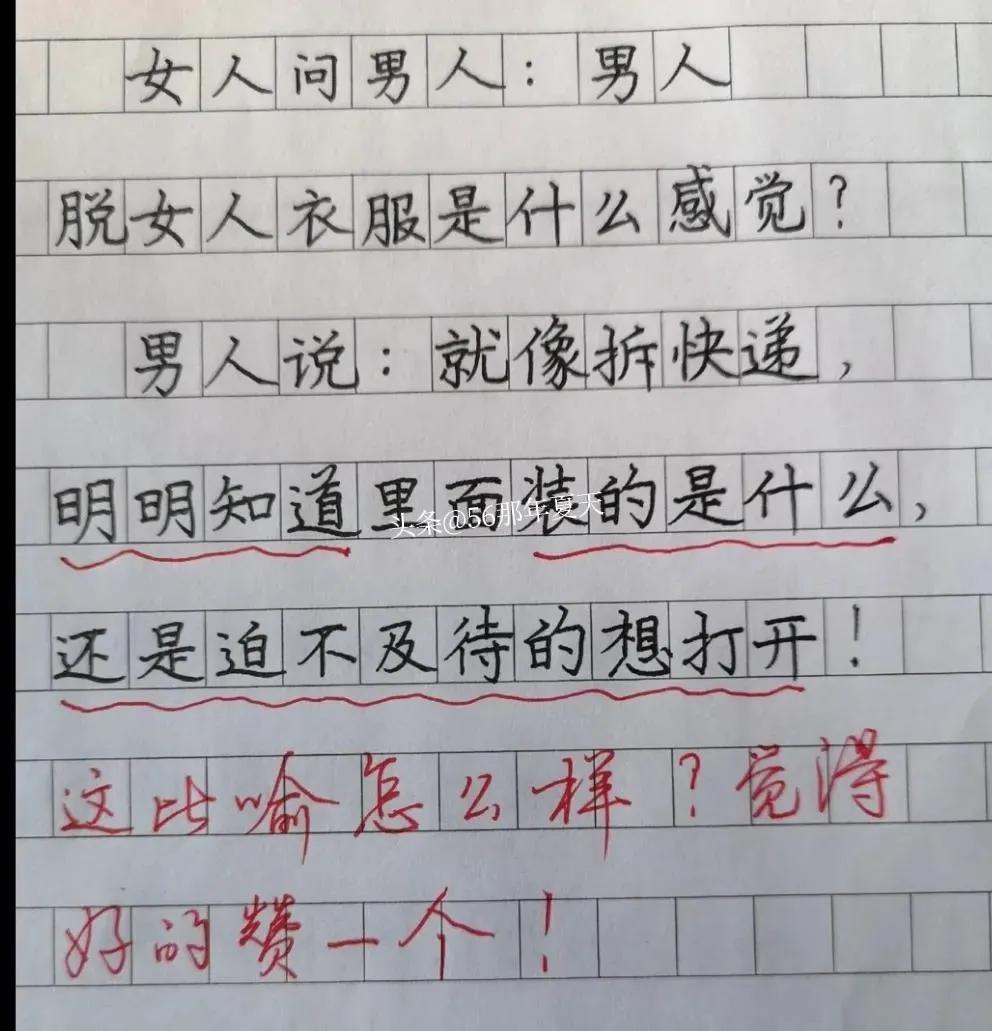 女人问男人：男人
脱女人衣服是什么感觉？
男人说：就像拆快递，
明明知道里面装的是什么，
头条@56那年夏天
还是迫不及待的想打开！
这比喻怎么样？觉得
好的赞一个！